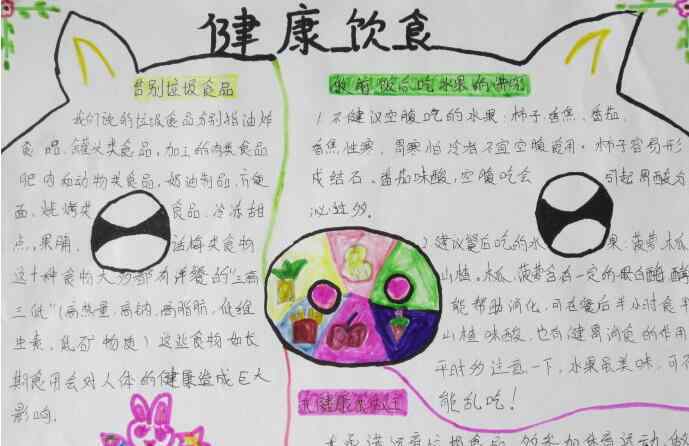 健康饮食
告别垃圾食品
我们说的垃圾食品分别指油炸
食品、罐头类食品、加工的肉类食品
肥肉和动物类食品、奶油制品、方便
面、烧烤类食品、冷冻甜
点、果脯、话梅类食物
这十种食物大多都有伴餐的"三高
三低"(高热量、高钠、高脂肪、低维
生素、低矿物质)这些食物如长
期食用会对人体的健康造成巨大
影响.
饭前饭后吃水果的讲究
1.不建议空腹吃的水果:柿子、香蕉、番茄、
香蕉性寒,胃寒怕冷者不宜空腹食用。柿子容易形
成结石、番茄味酸,空腹吃会引起胃酸分
泌过多.
2.建议餐后吃的水果:菠萝、木瓜、
山楂.木瓜、菠萝含有一定的蛋白酶,
能帮助消化,可在餐后半小时食
山楂味酸,也有健胃消食的作用
平时多注意一下,水果虽美味,可不
能乱吃!
健康